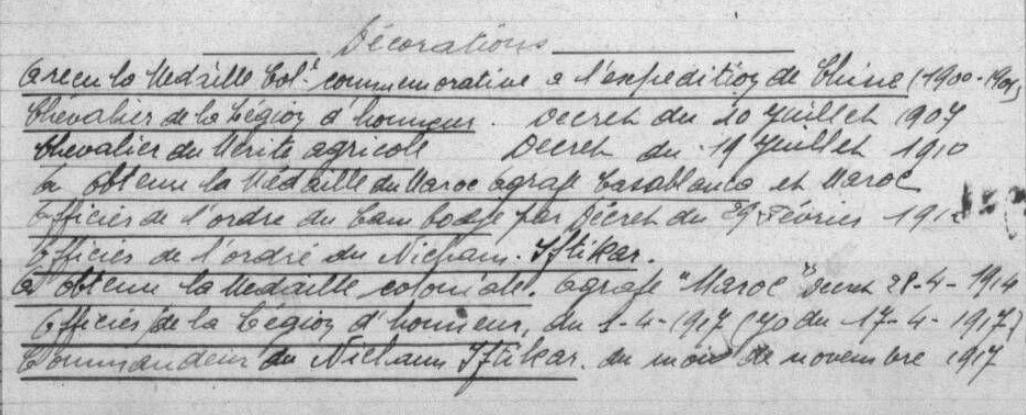 Décorations
A recu la Medaille Colle commemorative a l'expedition de Chine (1900-1901)
Chevalier de la Légion d'honneur. Decret du 20 Juillet 1907
Chevalier du Merite agricole Decret du 19 Juillet 1910
A obtenu la Médaille du Maroc Agrafe Casablanca et Maroc
Officier de l'ordre du Cambodge par Décret du 29 Février 1912
Officier de l'ordre du Nicham-Iftikar.
A obtenu la Medaille coloniale. Agrafe "Maroc" Decret 28-4-1914
Officier de la Légion d'honneur, du 1-4-1917 (JO du 17-4-1917)
Commandeur du Nicham Iftikar. du mois de novembre 1917